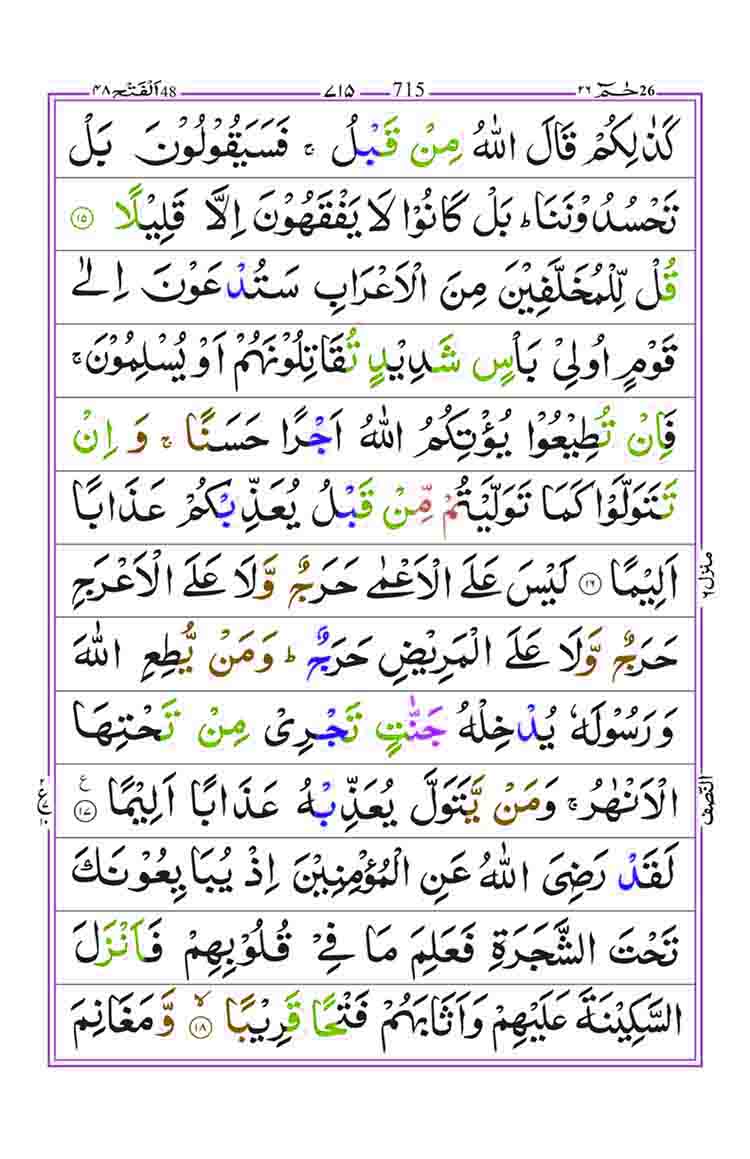 حٰمٓ 26 ۲۶ 715 ۷۱۵ 48 اَلْفَتْح ۴۸
كَذٰلِكُمْ قَالَ اللّٰهُ مِنْ قَبْلُ ۚ فَسَيَقُوْلُوْنَ بَلْ
تَحْسُدُوْنَنَا ؕ بَلْ كَانُوْا لَا يَفْقَهُوْنَ اِلَّا قَلِيْلًا ۱۵
قُلْ لِّلْمُخَلَّفِيْنَ مِنَ الْاَعْرَابِ سَتُدْعَوْنَ اِلٰى
قَوْمٍ اُولِيْ بَاْسٍ شَدِيْدٍ تُقَاتِلُوْنَهُمْ اَوْ يُسْلِمُوْنَ ۚ
فَاِنْ تُطِيْعُوْا يُؤْتِكُمُ اللّٰهُ اَجْرًا حَسَنًا ۚ وَ اِنْ
تَتَوَلَّوْا كَمَا تَوَلَّيْتُمْ مِّنْ قَبْلُ يُعَذِّبْكُمْ عَذَابًا
اَلِيْمًا ۱۶ لَيْسَ عَلَى الْاَعْمٰى حَرَجٌ وَّلَا عَلَى الْاَعْرَجِ
منزل ۶
حَرَجٌ وَّلَا عَلَى الْمَرِيْضِ حَرَجٌ ؕ وَمَنْ يُّطِعِ اللّٰهَ
وَرَسُوْلَهٗ يُدْخِلْهُ جَنّٰتٍ تَجْرِيْ مِنْ تَحْتِهَا
الْاَنْهٰرُ ۚ وَمَنْ يَّتَوَلَّ يُعَذِّبْهُ عَذَابًا اَلِيْمًا ۱۷ ع
النصف
لَقَدْ رَضِيَ اللّٰهُ عَنِ الْمُؤْمِنِيْنَ اِذْ يُبَايِعُوْنَكَ
تَحْتَ الشَّجَرَةِ فَعَلِمَ مَا فِيْ قُلُوْبِهِمْ فَاَنْزَلَ
السَّكِيْنَةَ عَلَيْهِمْ وَاَثَابَهُمْ فَتْحًا قَرِيْبًا ۙ ۱۸ وَّمَغَانِمَ